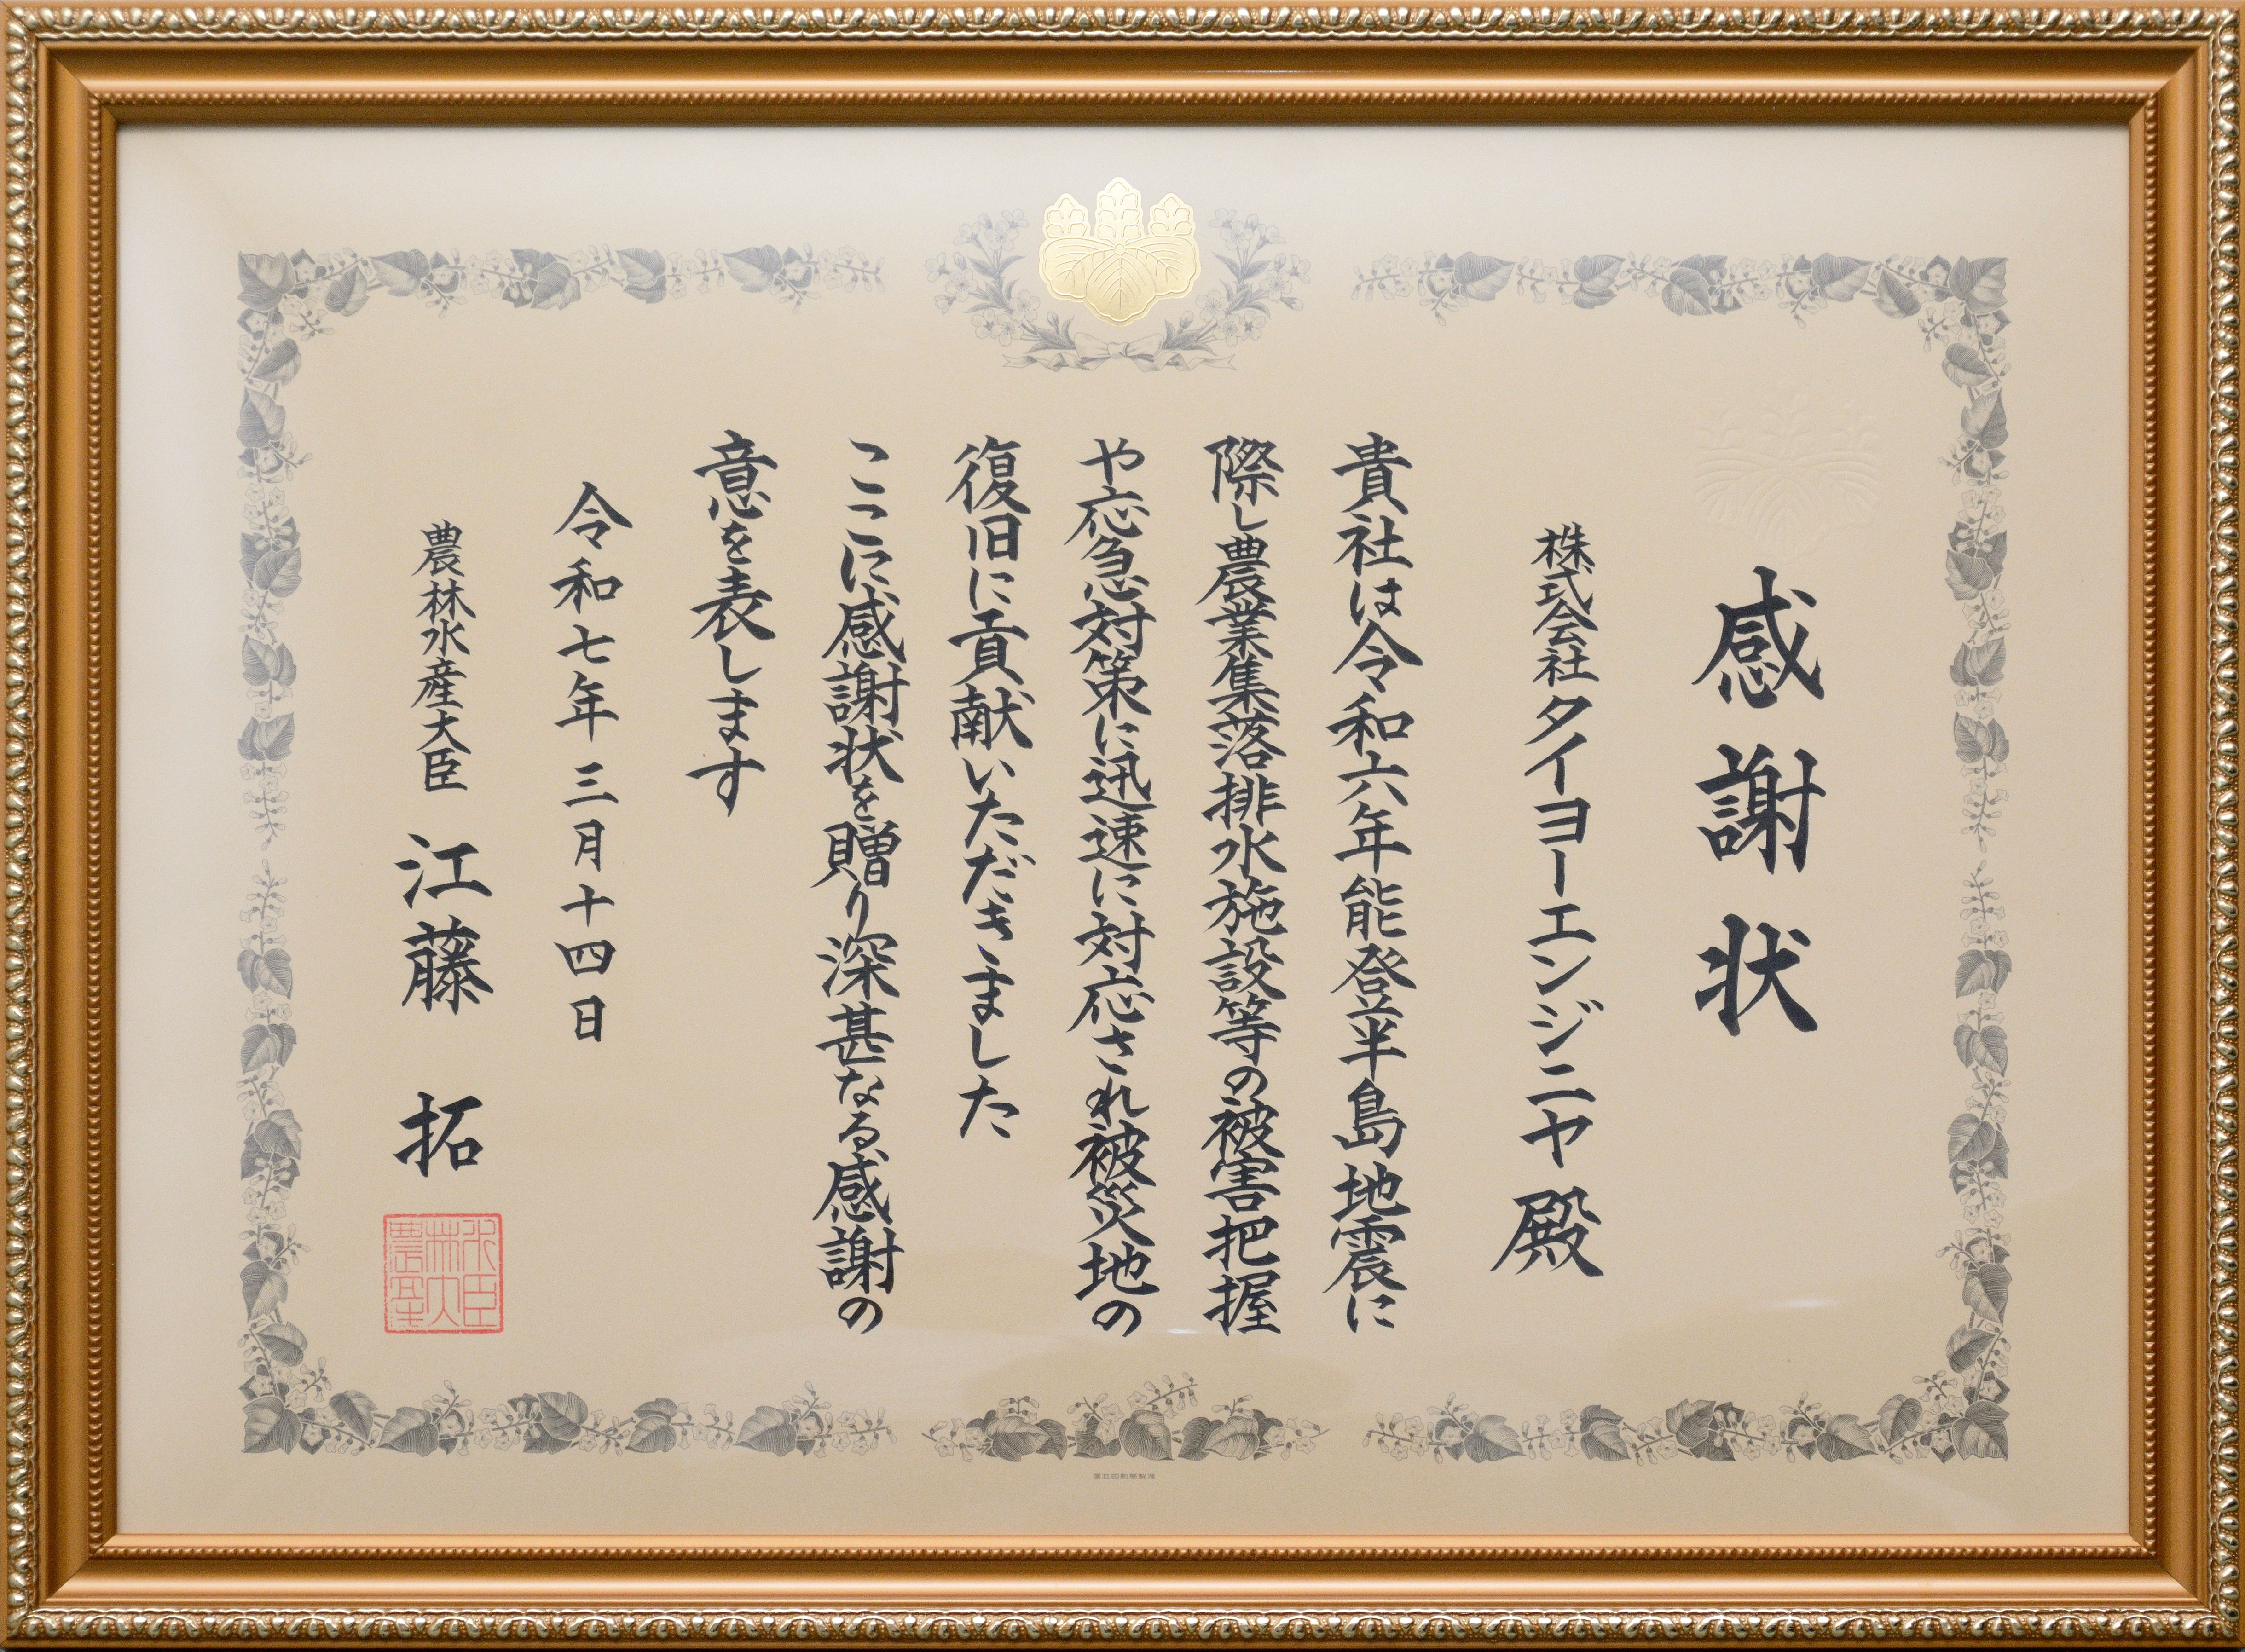 感謝状
株式会社タイヨーエンジニヤ 殿
貴社は令和六年能登半島地震に
際し農業集落排水施設等の被害把握
や応急対策に迅速に対応され被災地の
復旧に貢献いただきました
ここに感謝状を贈り深甚なる感謝の
意を表します
令和七年三月十四日
農林水産大臣 江藤 拓